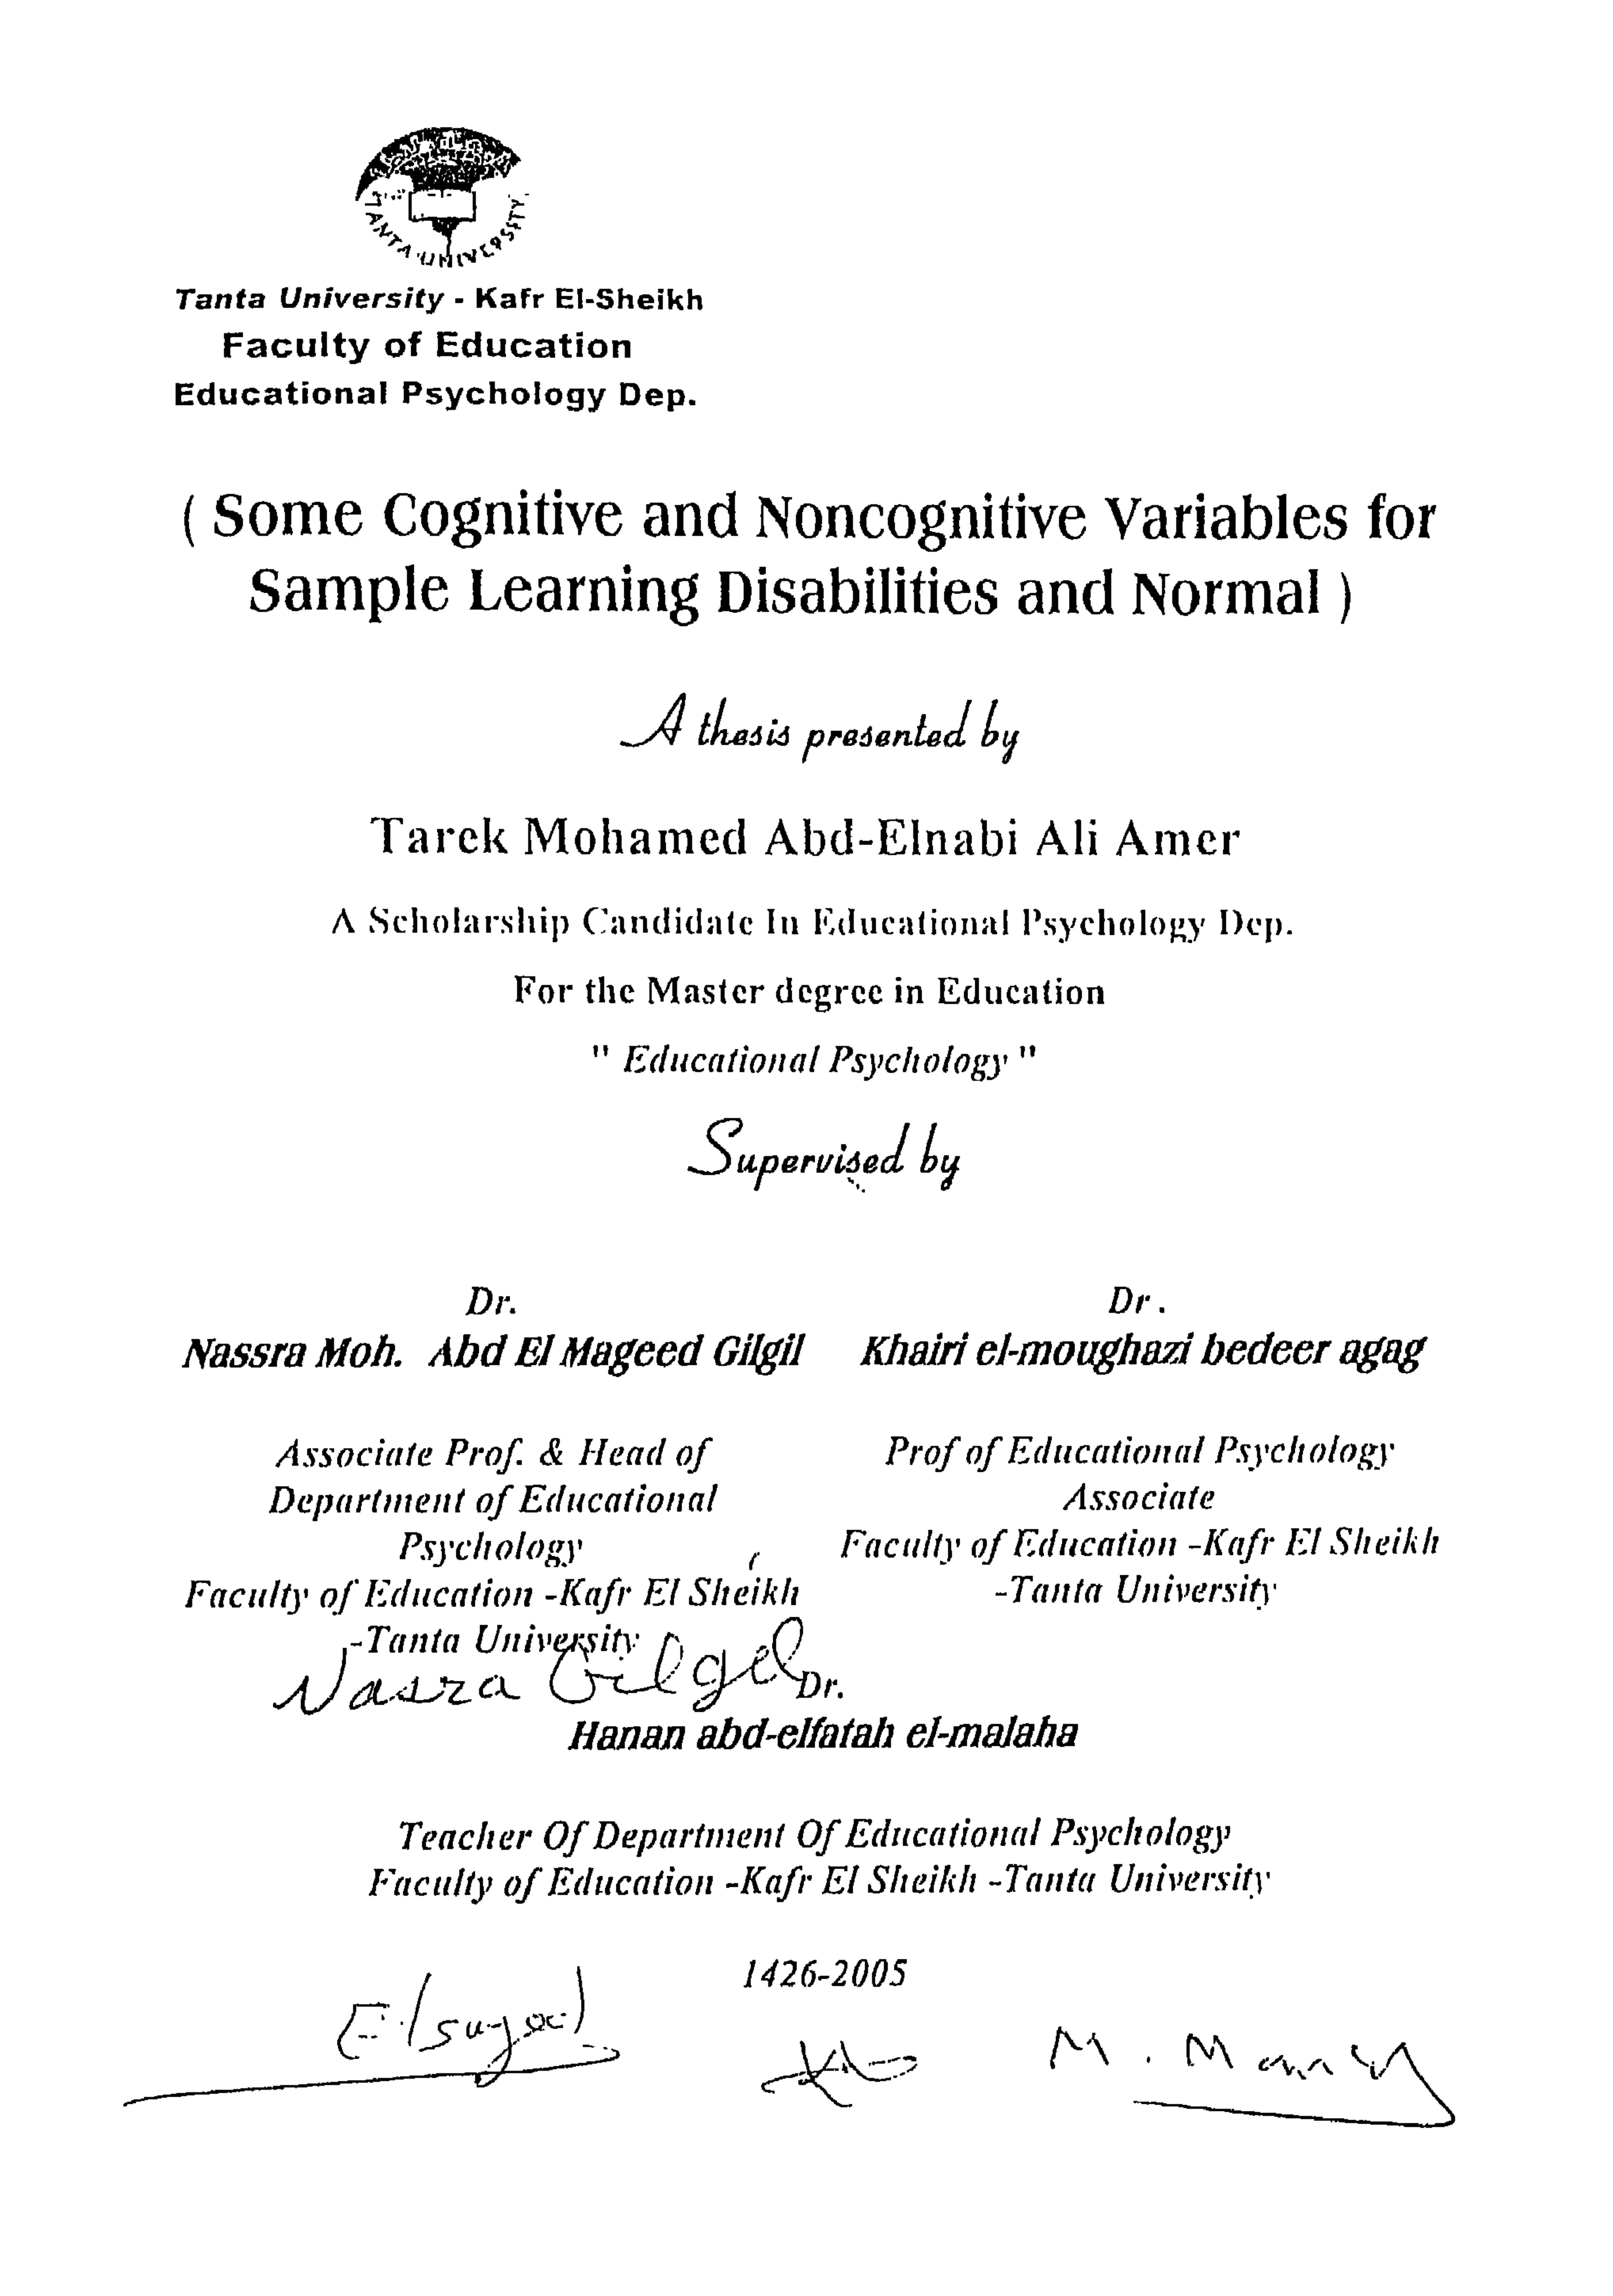 TANTA UNIVERSITY
Tanta University - Kafr El-Sheikh
Faculty of Education
Educational Psychology Dep.
( Some Cognitive and Noncognitive Variables for
Sample Learning Disabilities and Normal )
A thesis presented by
Tarek Mohamed Abd-Elnabi Ali Amer
A Scholarship Candidate In Educational Psychology Dep.
For the Master degree in Education
" Educational Psychology "
Supervised by
Dr.
Nassra Moh. Abd El Mageed Gilgil
Associate Prof. & Head of
Department of Educational
Psychology
Faculty of Education -Kafr El Sheikh
-Tanta University
Nasra Gilgel
Dr.
Khairi el-moughazi bedeer agag
Prof of Educational Psychology
Associate
Faculty of Education -Kafr El Sheikh
-Tanta University
Dr.
Hanan abd-elfatah el-malaha
Teacher Of Department Of Educational Psychology
Faculty of Education -Kafr El Sheikh -Tanta University
1426-2005
Elsayed